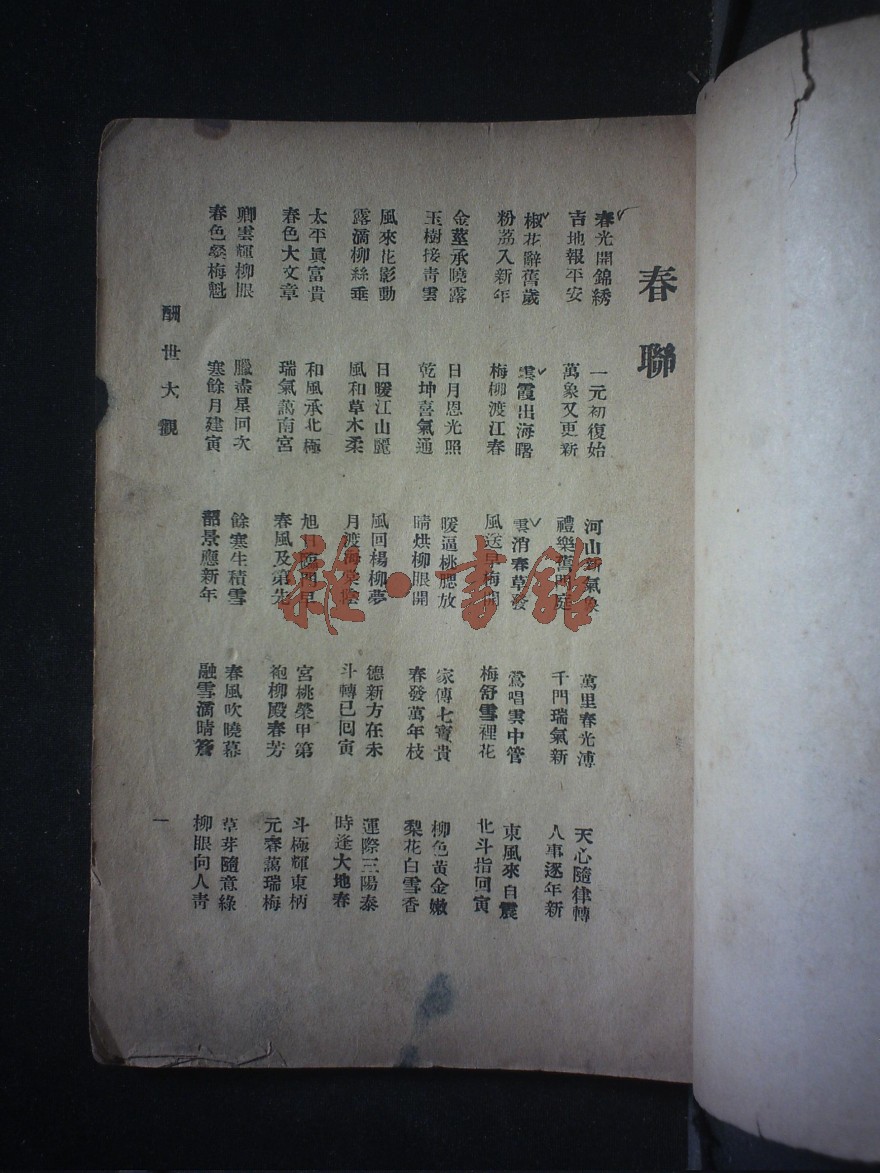 春聯
春光開錦綉
吉地報平安
一元初復始
萬象又更新
河山新氣象
禮樂舊門庭
萬里春光溥
千門瑞氣新
天心隨律轉
人事逐年新
椒花辭舊歲
粉荔入新年
雲霞出海曙
梅柳渡江春
雲消春草發
風送早梅開
鶯唱雲中管
梅舒雪裡花
東風來自震
北斗指回寅
金莖承曉露
玉樹接青雲
日月恩光照
乾坤喜氣通
暖逼桃腮放
晴烘柳眼開
家傳七寶貴
春發萬年枝
柳色黃金嫩
梨花白雪香
風來花影動
露滴柳絲垂
日暖江山麗
風和草木柔
風回楊柳夢
月渡海棠陰
德新方在未
斗轉已回寅
運際三陽泰
時逢大地春
太平眞富貴
春色大文章
和風承北極
瑞氣萬南宮
旭日臨門早
春風及第先
宮桃榮甲第
袍柳殿春芳
斗極輝東柄
元春萬瑞梅
卿雲輝柳眼
春色發梅魁
臘盡星回次
寒餘月建寅
餘寒生積雪
韶景應新年
春風吹曉幕
融雪滴晴簷
草芽隨意綠
柳眼向人靑
酬世大觀
一
雜·書館